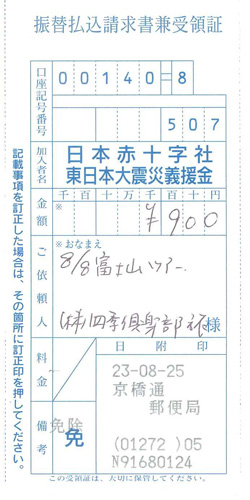 振替払込請求書兼受領証
口座記号番号
00140=8
507
加入者名
日本赤十字社
東日本大震災義援金
金額
※
千百十万千百十円
¥900
ご依頼人
※おなまえ
8/8富士山ツアー
(株)四季倶楽部
様
料金
備考
免除
免
日附印
23-08-25
京橋通
郵便局
(01272 )05
N91680124
記載事項を訂正した場合は、その箇所に訂正印を押してください。
この受領証は、大切に保管してください。